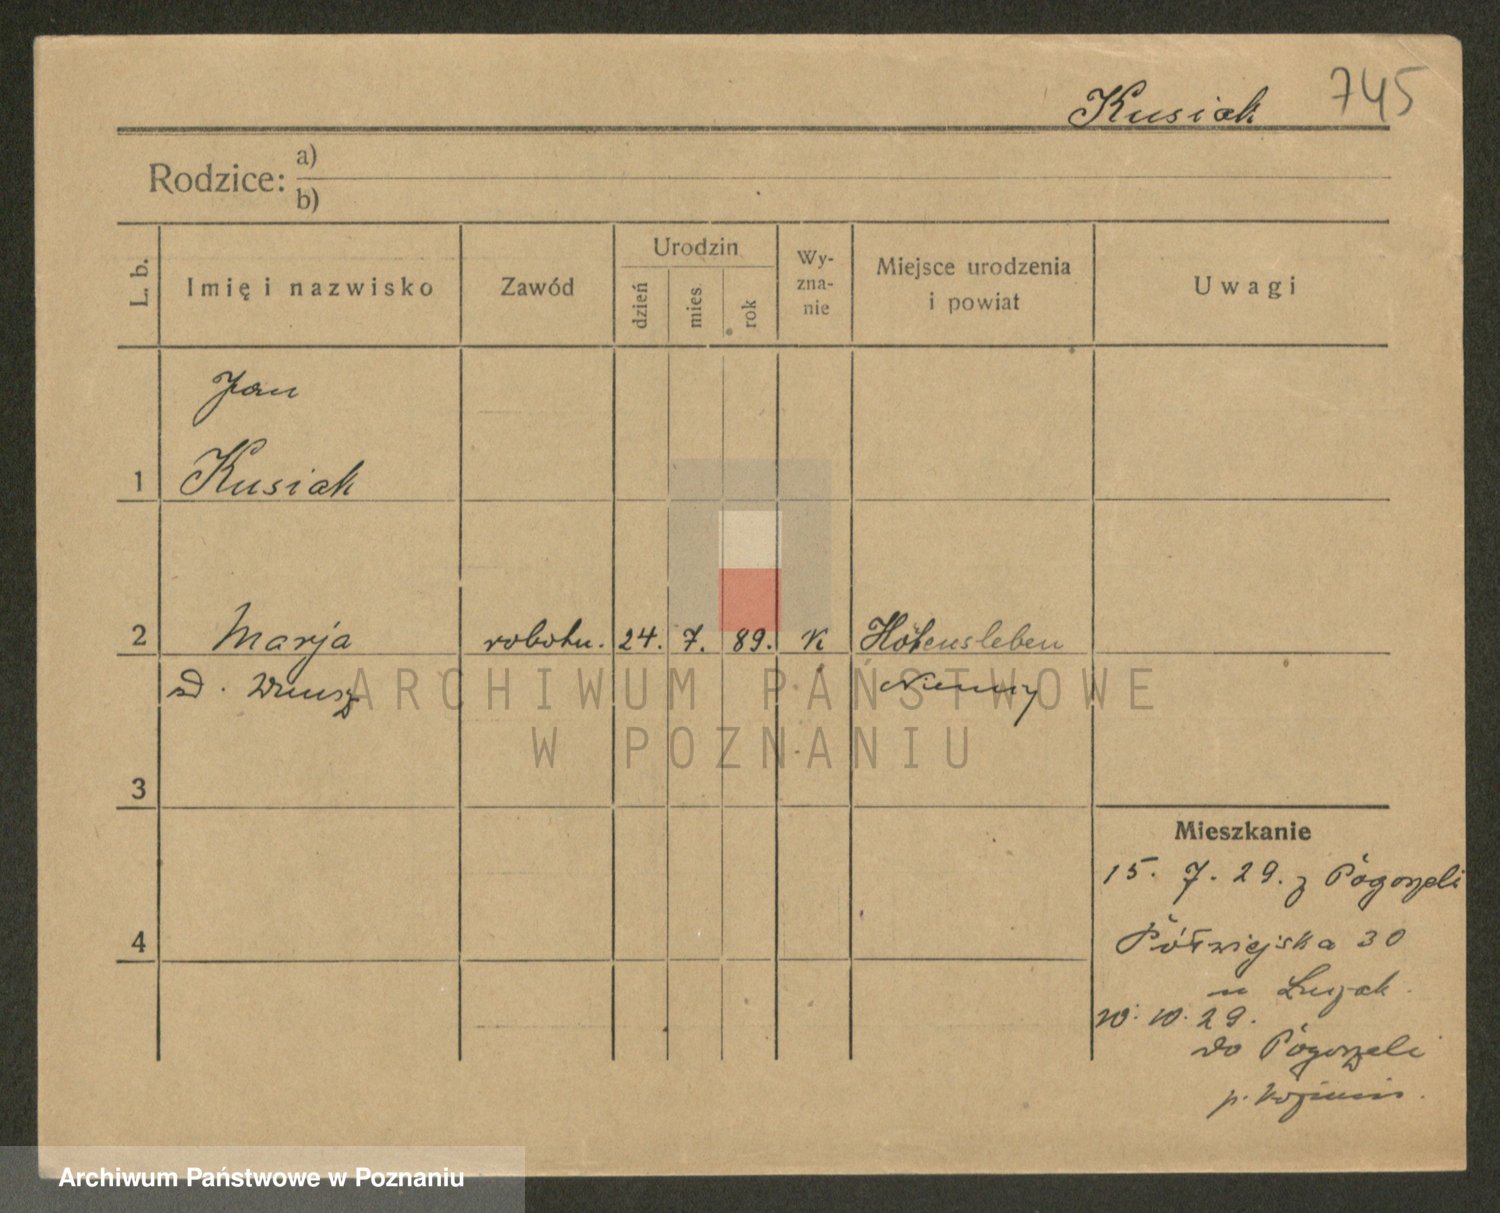 Kusiak 745
Rodzice:
a)
b)
L. b.
Imię i nazwisko
Zawód
Urodzin
dzień
mies.
rok
Wy-
zna-
nie
Miejsce urodzenia
i powiat
Uwagi
Jan
1 Kusiak
2 Marja robotn. 24. 7. 89. K Hötensleben
Niemcy
ARCHIWUM PAŃSTWOWE
W POZNANIU
3
Mieszkanie
15. 7. 29. z Pogorzeli
4 Półwiejska 30
u
29.
do Pogorzeli
p. Koźmin.
Archiwum Państwowe w Poznaniu